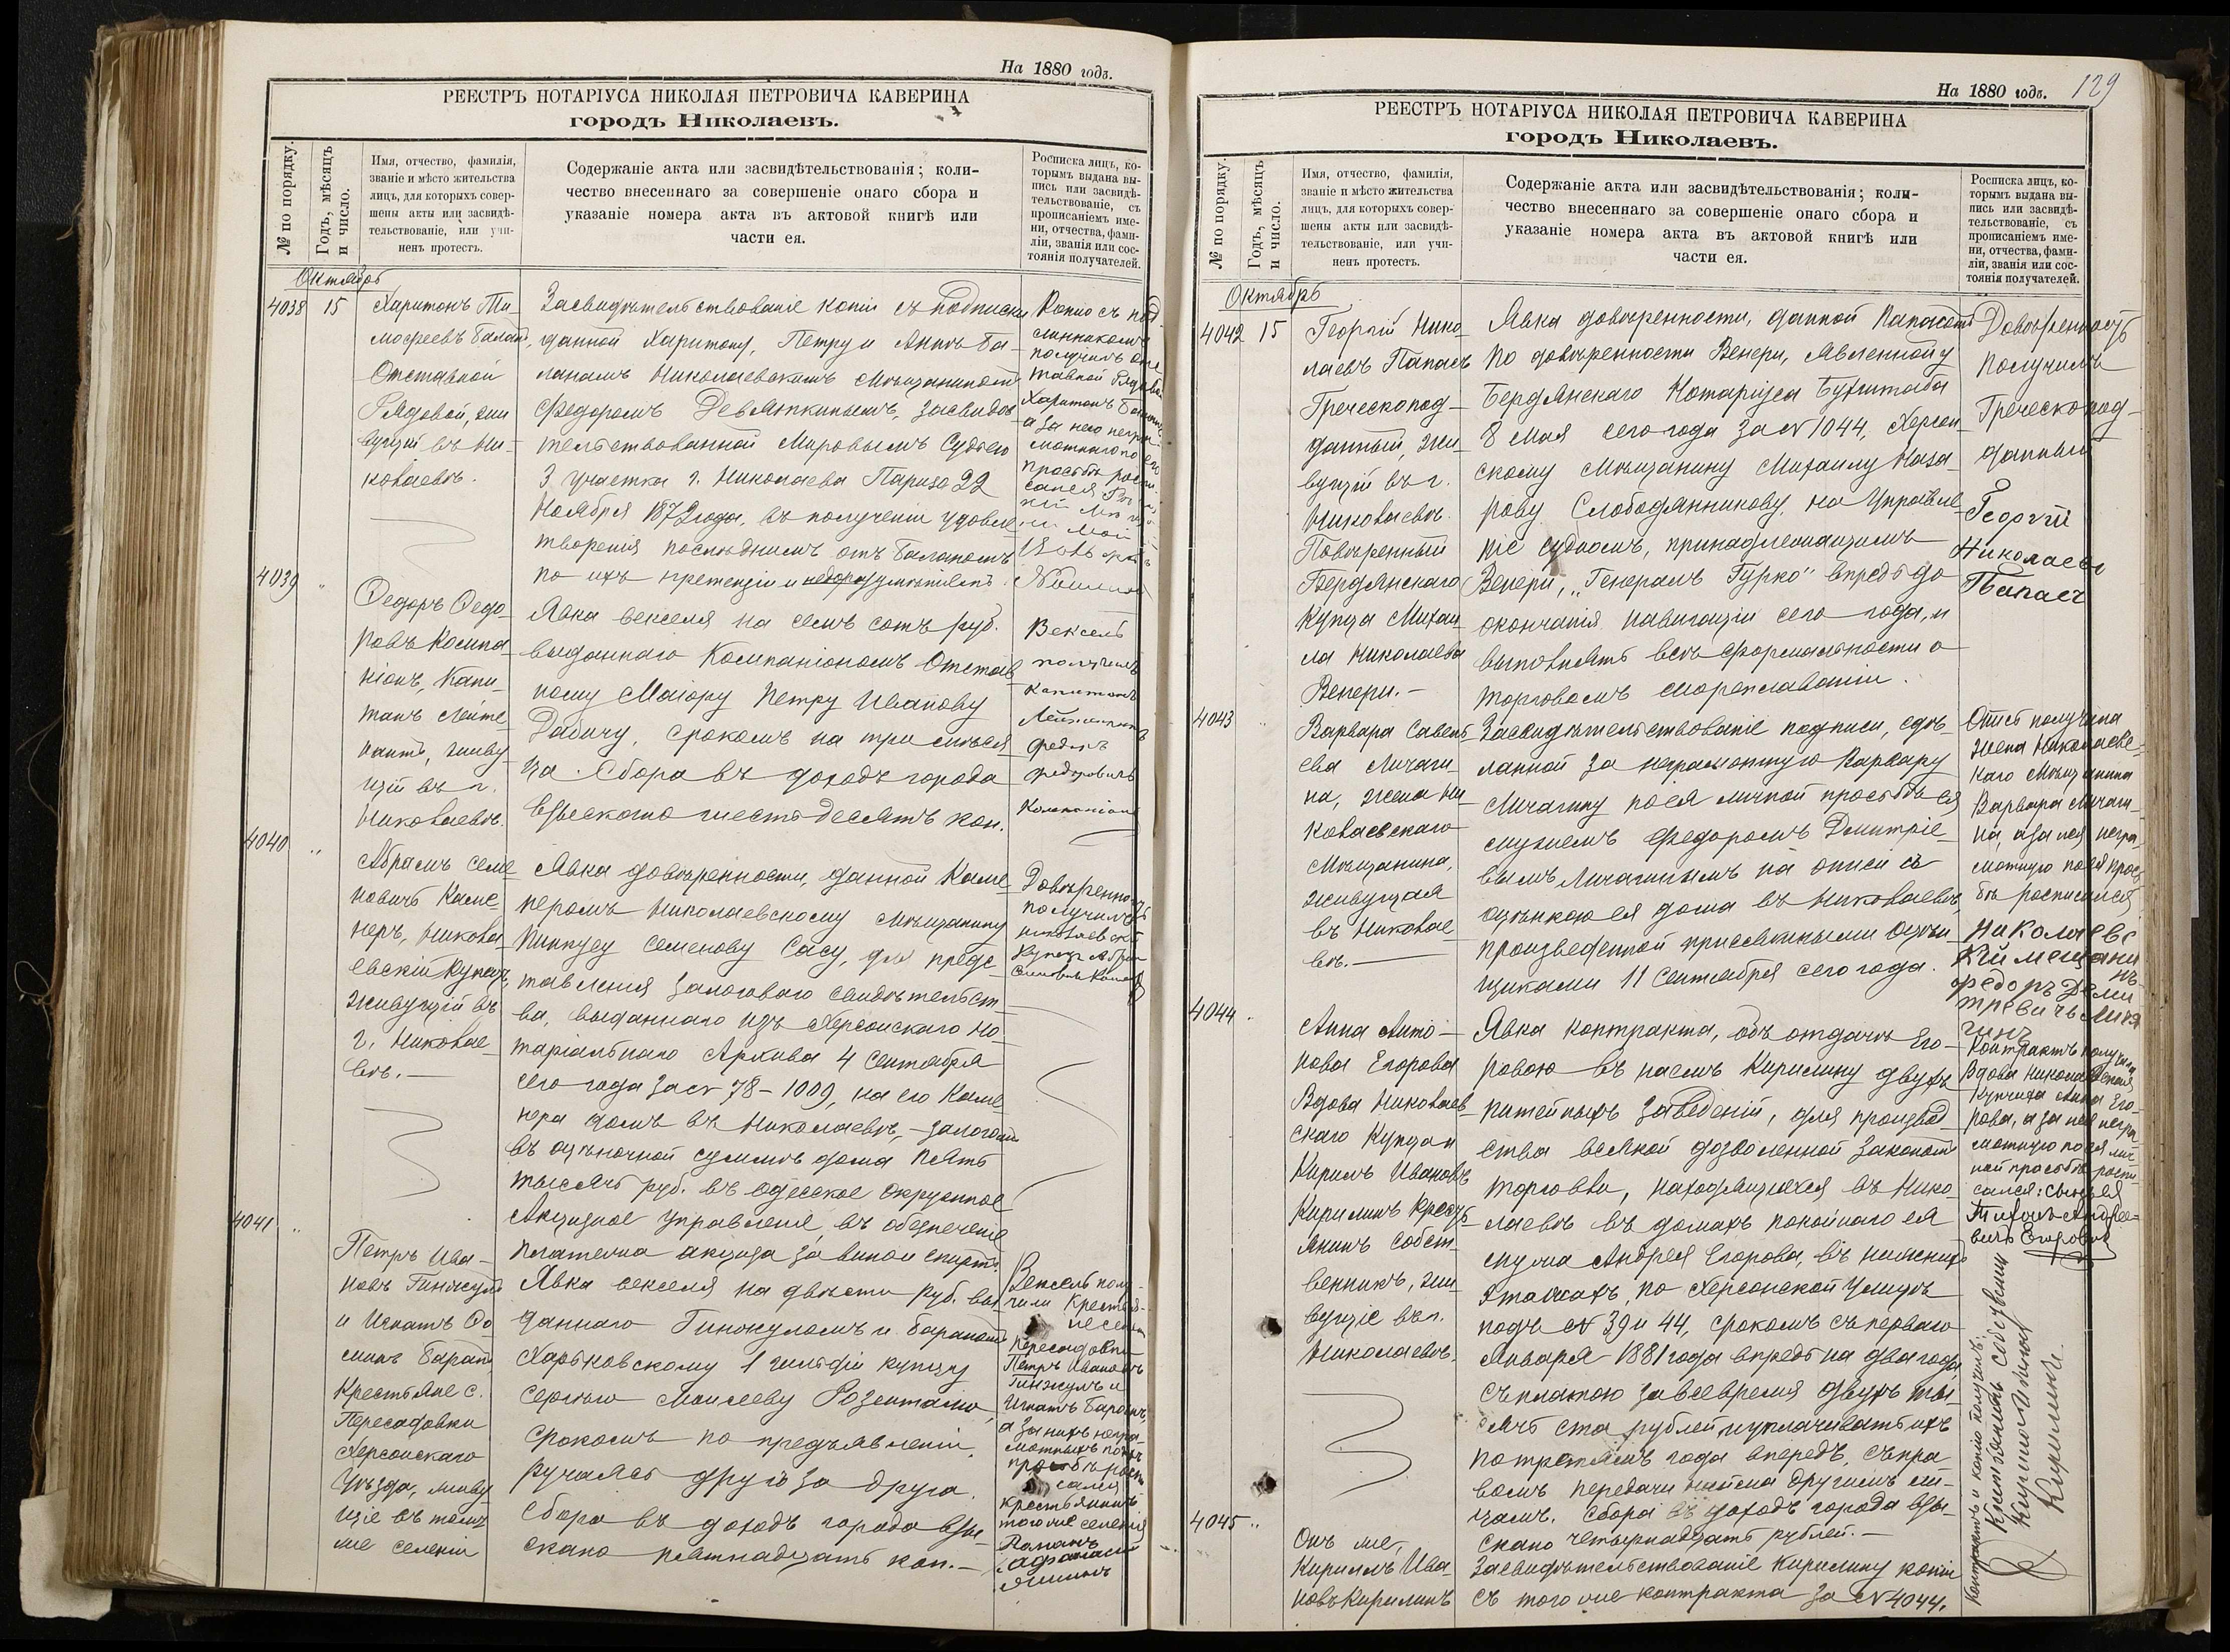 На 1880 годъ.
РЕЕСТРЪ НОТАРІУСА НИКОЛАЯ ПЕТРОВИЧА КАВЕРИНА
городъ Николаевъ.
№ по порядку.
Годъ, мѣсяцъ
и число.
Имя, отчество, фамилія,
званіе и мѣсто жительства
лицъ, для которыхъ совер-
шены акты или засвидѣ-
тельствованіе, или учи-
ненъ протестъ.
Содержаніе акта или засвидѣтельствованія; коли-
чество внесеннаго за совершеніе онаго сбора и
указаніе номера акта въ актовой книгѣ или
части ея.
Росписка лицъ, ко-
торымъ выдана вы-
пись или засвидѣ-
тельствованіе, съ
прописаніемъ име-
ни, отчества, фами-
ліи, званія или сос-
тоянія получателей.
Октябрь
4038
15
Харитонъ Ти-
мофеевъ
Отставной
Рядовой, жи
вущій въ Ни-
колаевѣ.
Засвидѣтельствованіе копіи съ подписки
данной Харитону, Петру и Аннѣ Ба-
ланамъ Николаевскимъ Мѣщаниномъ
Федоромъ Девяткинымъ, засвидѣ
тельствованной Мировымъ Судьею
3 участка г. Николаева Паризо 22
Ноября 1879 года, въ полученіи удовле
творенія послѣднимъ отъ Балановъ
по ихъ претензіи и
Копію съ под
линникомъ
получилъ отс
тавной Рядовой
Харитонъ
а за него негра
мотнаго по его
просьбѣ роспи
сался
4039
"
Федоръ Федо-
ровъ Компа-
ніонъ, Капи-
танъ Лейте
нантъ, живу
щій въ г.
Николаевѣ.
Явка векселя на семь сотъ руб.
выданнаго Компаніономъ Отстав
ному Маіору Петру Иванову
Дабичу, срокомъ на три мѣся
ца. Сбора въ доходъ города
взыскано шестьдесятъ коп.
Вексель
получилъ
капитанъ
Лейтенантъ
Федоръ
Федоровичъ
Компаніонъ
4040
"
Абрамъ Семе
новичъ Каме-
неръ, Никола
евскій Купецъ,
живущій въ
г. Николае-
вѣ.—
Явка довѣренности, данной Каме
неромъ Николаевскому Мѣщанину
Пинкусу Семенову Сасу, для предс
тавленія залоговаго свидѣтельст
ва, выданнаго изъ Херсонскаго Но-
таріальнаго Архива 4 Сентября
сего года за № 78–1009, на его Каме
нера домъ въ Николаевѣ,— залогомъ
въ оцѣночной суммѣ дома пять
тысячъ руб. въ Одесское Окружное
Акцизное Управленіе, въ обезпеченіе
платежа акциза за вино и спиртъ.
Довѣренность
получилъ
николаевскій
Купецъ Абрамъ
4041
"
Петръ Ива-
новъ Гинжулъ
и Игнатъ Фо
минъ Баранъ
Крестьяне с.
Пересадовки
Херсонскаго
Уѣзда, живу
щіе въ томъ
же селеніи
Явка векселя на двѣсти руб. вы
даннаго Гинжуломъ и Бараномъ
Харьковскому 1 гильдіи купцу
Сергѣю Моисееву Розенталю,
срокомъ по предъявленіи
ручаясь другъ за друга.
Сбора въ доходъ города взы-
скано пятнадцать коп.—
Вексель полу-
чили Крестья-
не села
Пересадовки
Петръ Ивановъ
Гинжулъ и
Игнатъ Баранъ,
а за нихъ негра
мотныхъ по ихъ
просьбѣ роспи
сался
крестьянинъ
того же селенія
Романъ
На 1880 годъ.
129
РЕЕСТРЪ НОТАРІУСА НИКОЛАЯ ПЕТРОВИЧА КАВЕРИНА
городъ Николаевъ.
№ по порядку.
Годъ, мѣсяцъ
и число.
Имя, отчество, фамилія,
званіе и мѣсто жительства
лицъ, для которыхъ совер-
шены акты или засвидѣ-
тельствованіе, или учи-
ненъ протестъ.
Содержаніе акта или засвидѣтельствованія; коли-
чество внесеннаго за совершеніе онаго сбора и
указаніе номера акта въ актовой книгѣ или
части ея.
Росписка лицъ, ко-
торымъ выдана вы-
пись или засвидѣ-
тельствованіе, съ
прописаніемъ име-
ни, отчества, фами-
ліи, званія или сос-
тоянія получателей.
Октябрь
4042
15
Георгій Нико-
лаевъ Папасъ
Греческопод-
данный, жи-
вущій въ г.
Николаевѣ.
Повѣренный
Бердянскаго
Купца Михаи
ла Николаева
Венери.—
Явка довѣренности, данной Папасомъ
по довѣренности Венери, явленной у
Бердянскаго Нотаріуса Бухштаба
8 Мая сего года за № 1044, Херсон
скому Мѣщанину Михаилу Наза-
рову Слободянникову, на управле
ніе судномъ, принадлежащимъ
Венери, „Генералъ Гурко" впредь до
окончанія навигаціи сего года, и
выполнять всѣ формальности о
торговомъ мореплаваніи.
Довѣренность
получилъ
Греческопод-
данный
Георгій
Николаевъ
Папасъ
4043
"
Варвара Савель
ева Личаги-
на, жена Ни
колаевскаго
Мѣщанина,
живущая
въ Николае-
вѣ.—
Засвидѣтельствованіе подписи, сдѣ-
ланной за неграмотную Варвару
Личагину по ея личной просьбѣ ея
мужемъ Федоромъ Дмитріе-
вымъ Личагинымъ на описи съ
оцѣнкою ея дома въ Николаевѣ,
произведенной присяжными оцѣн
щиками 11 Сентября сего года.
Опись получила
жена Николаевс
каго Мѣщанина
Варвара Личаги-
на, а за нея негра
мотную по ея прось
бѣ росписался
Николаевс
кій мещани
нъ
Федоръ Дми
тревичъ Личя
гинъ
4044
"
Анна Анто-
нова Егорова
Вдова Николаев
скаго Купца и
Кирилъ Ивановъ
Кирилинъ Кресть
янинъ собст-
венникъ, жи-
вущіе въ г.
Николаевѣ.
Явка контракта, объ отдачѣ Его-
ровою въ наемъ Кирилину двухъ
питейныхъ заведеній, для производ
ства всякой дозволенной закономъ
торговли, находящихся въ Нико-
лаевѣ въ домахъ покойнаго ея
мужа Андрея Егорова, въ нижнихъ
этажахъ, по Херсонской улицѣ
подъ № 39 и 44, срокомъ съ перваго
Января 1881 года впредь на два года,
съ платою за все время двухъ ты-
сячъ ста рублей и уплачивать ихъ
по третямъ года впередъ, съ пра
вомъ передачи найма другимъ ли-
цамъ. Сбора въ доходъ города взы-
скано четырнадцать рублей.—
Контрактъ получила
Вдова Николаевская
Купчиха Анна Его-
рова, а за нея негра
мотную по ея лич
ной просьбѣ роспи-
сался: сынъ ея
Андрее-
вичъ Егоровъ
4045
"
Онъ же,
Кириллъ Ива-
новъ Кирилинъ
Засвидѣтельствованіе Кирилину копіи
съ того же контракта за № 4044.
Контрактъ и копію получилъ:
Крестьянинъ собственникъ
Кирилинъ